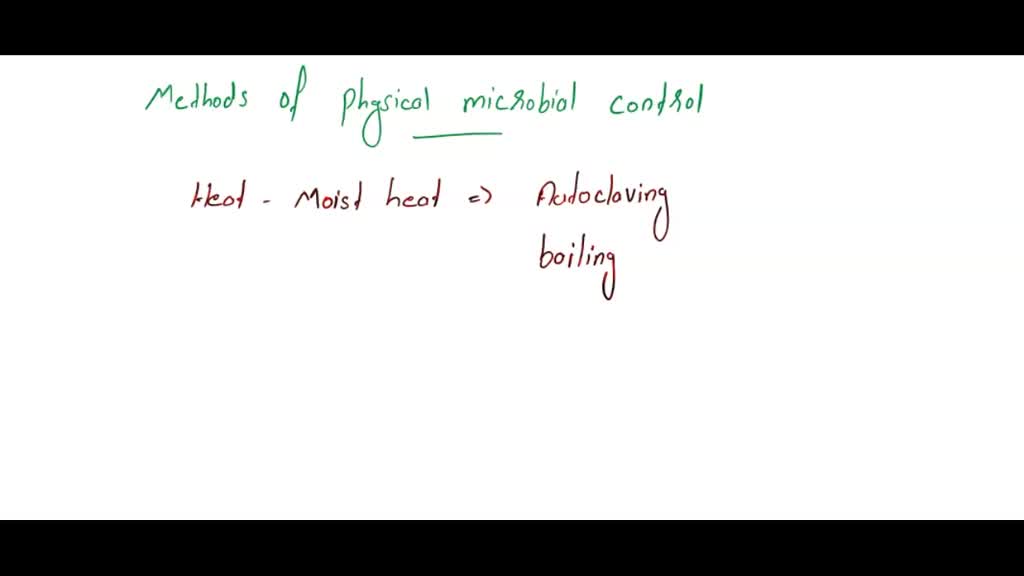 Methods of physical microbial control
Heat - Moist heat => Autoclaving
boiling